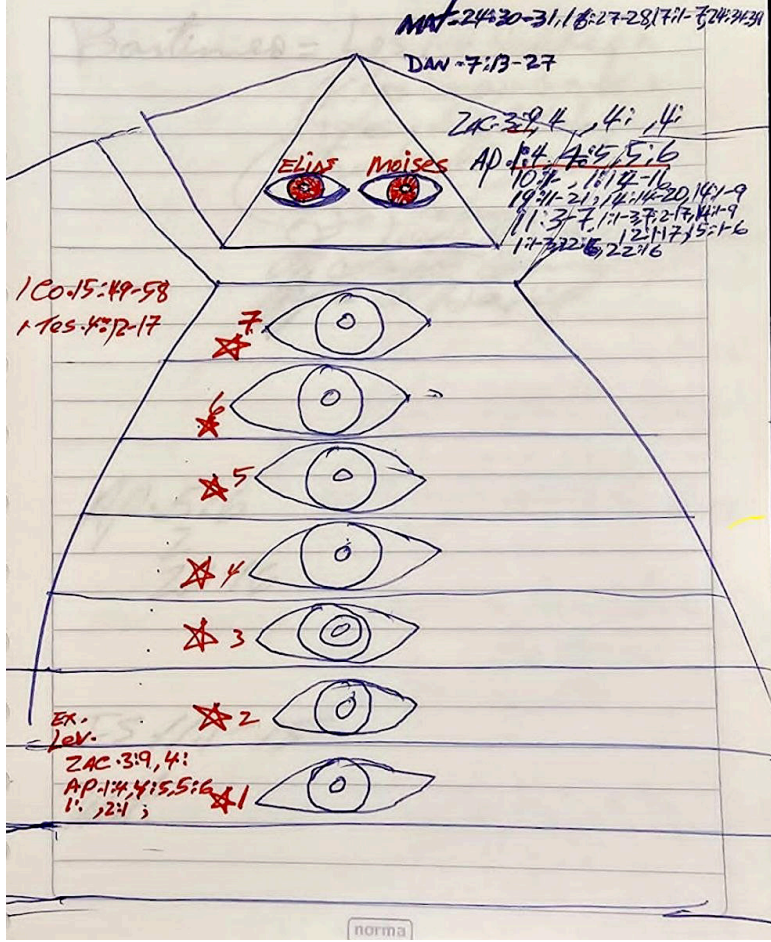 MAT-24:30-31, 16:27-28, 17:1-7, 24:34-39
DAN-7:13-27
ZAC-3:9, 4 , 4: , 4:
AP.1:4, 4:5, 5:6
10:1- , 1:14-16
19:11-21, 14:14-20, 14:1-9
11:3-7, 1:1-3, 7:2-17, 14:1-9
12:1-17, 15:1-6
22:16
ELIAS MOISES
1 CO.15:49-58
1 Tes.4:12-17
7
6
5
4
3
2
EX.
Lev.
ZAC-3:9, 4:
AP.1:4, 4:5, 5:6
1: , 2:1 ;
1
norma